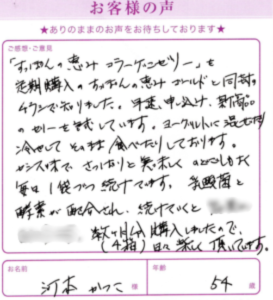 お客様の声
★ありのままのお声をお待ちしております★
ご感想・ご意見
「すっぽんの恵み コラーゲンゼリー」を
定期購入のすっぽんの恵みゴールドと同封の
チラシで知りました。早速、申込み、新商品
のゼリーを試しています。ヨーグルトに混ぜたり
冷やしてそのまま食べたりしております。
カシス味で、さっぱりと美味しく のどごしもよく
毎日1袋づつ続けてます。乳酸菌と
酵素が配合され、続けていくと
数ヶ月分購入しましたので、
(4箱)日々楽しく頂いてます。
お名前
河本 かつこ 様
年齢
54 歳